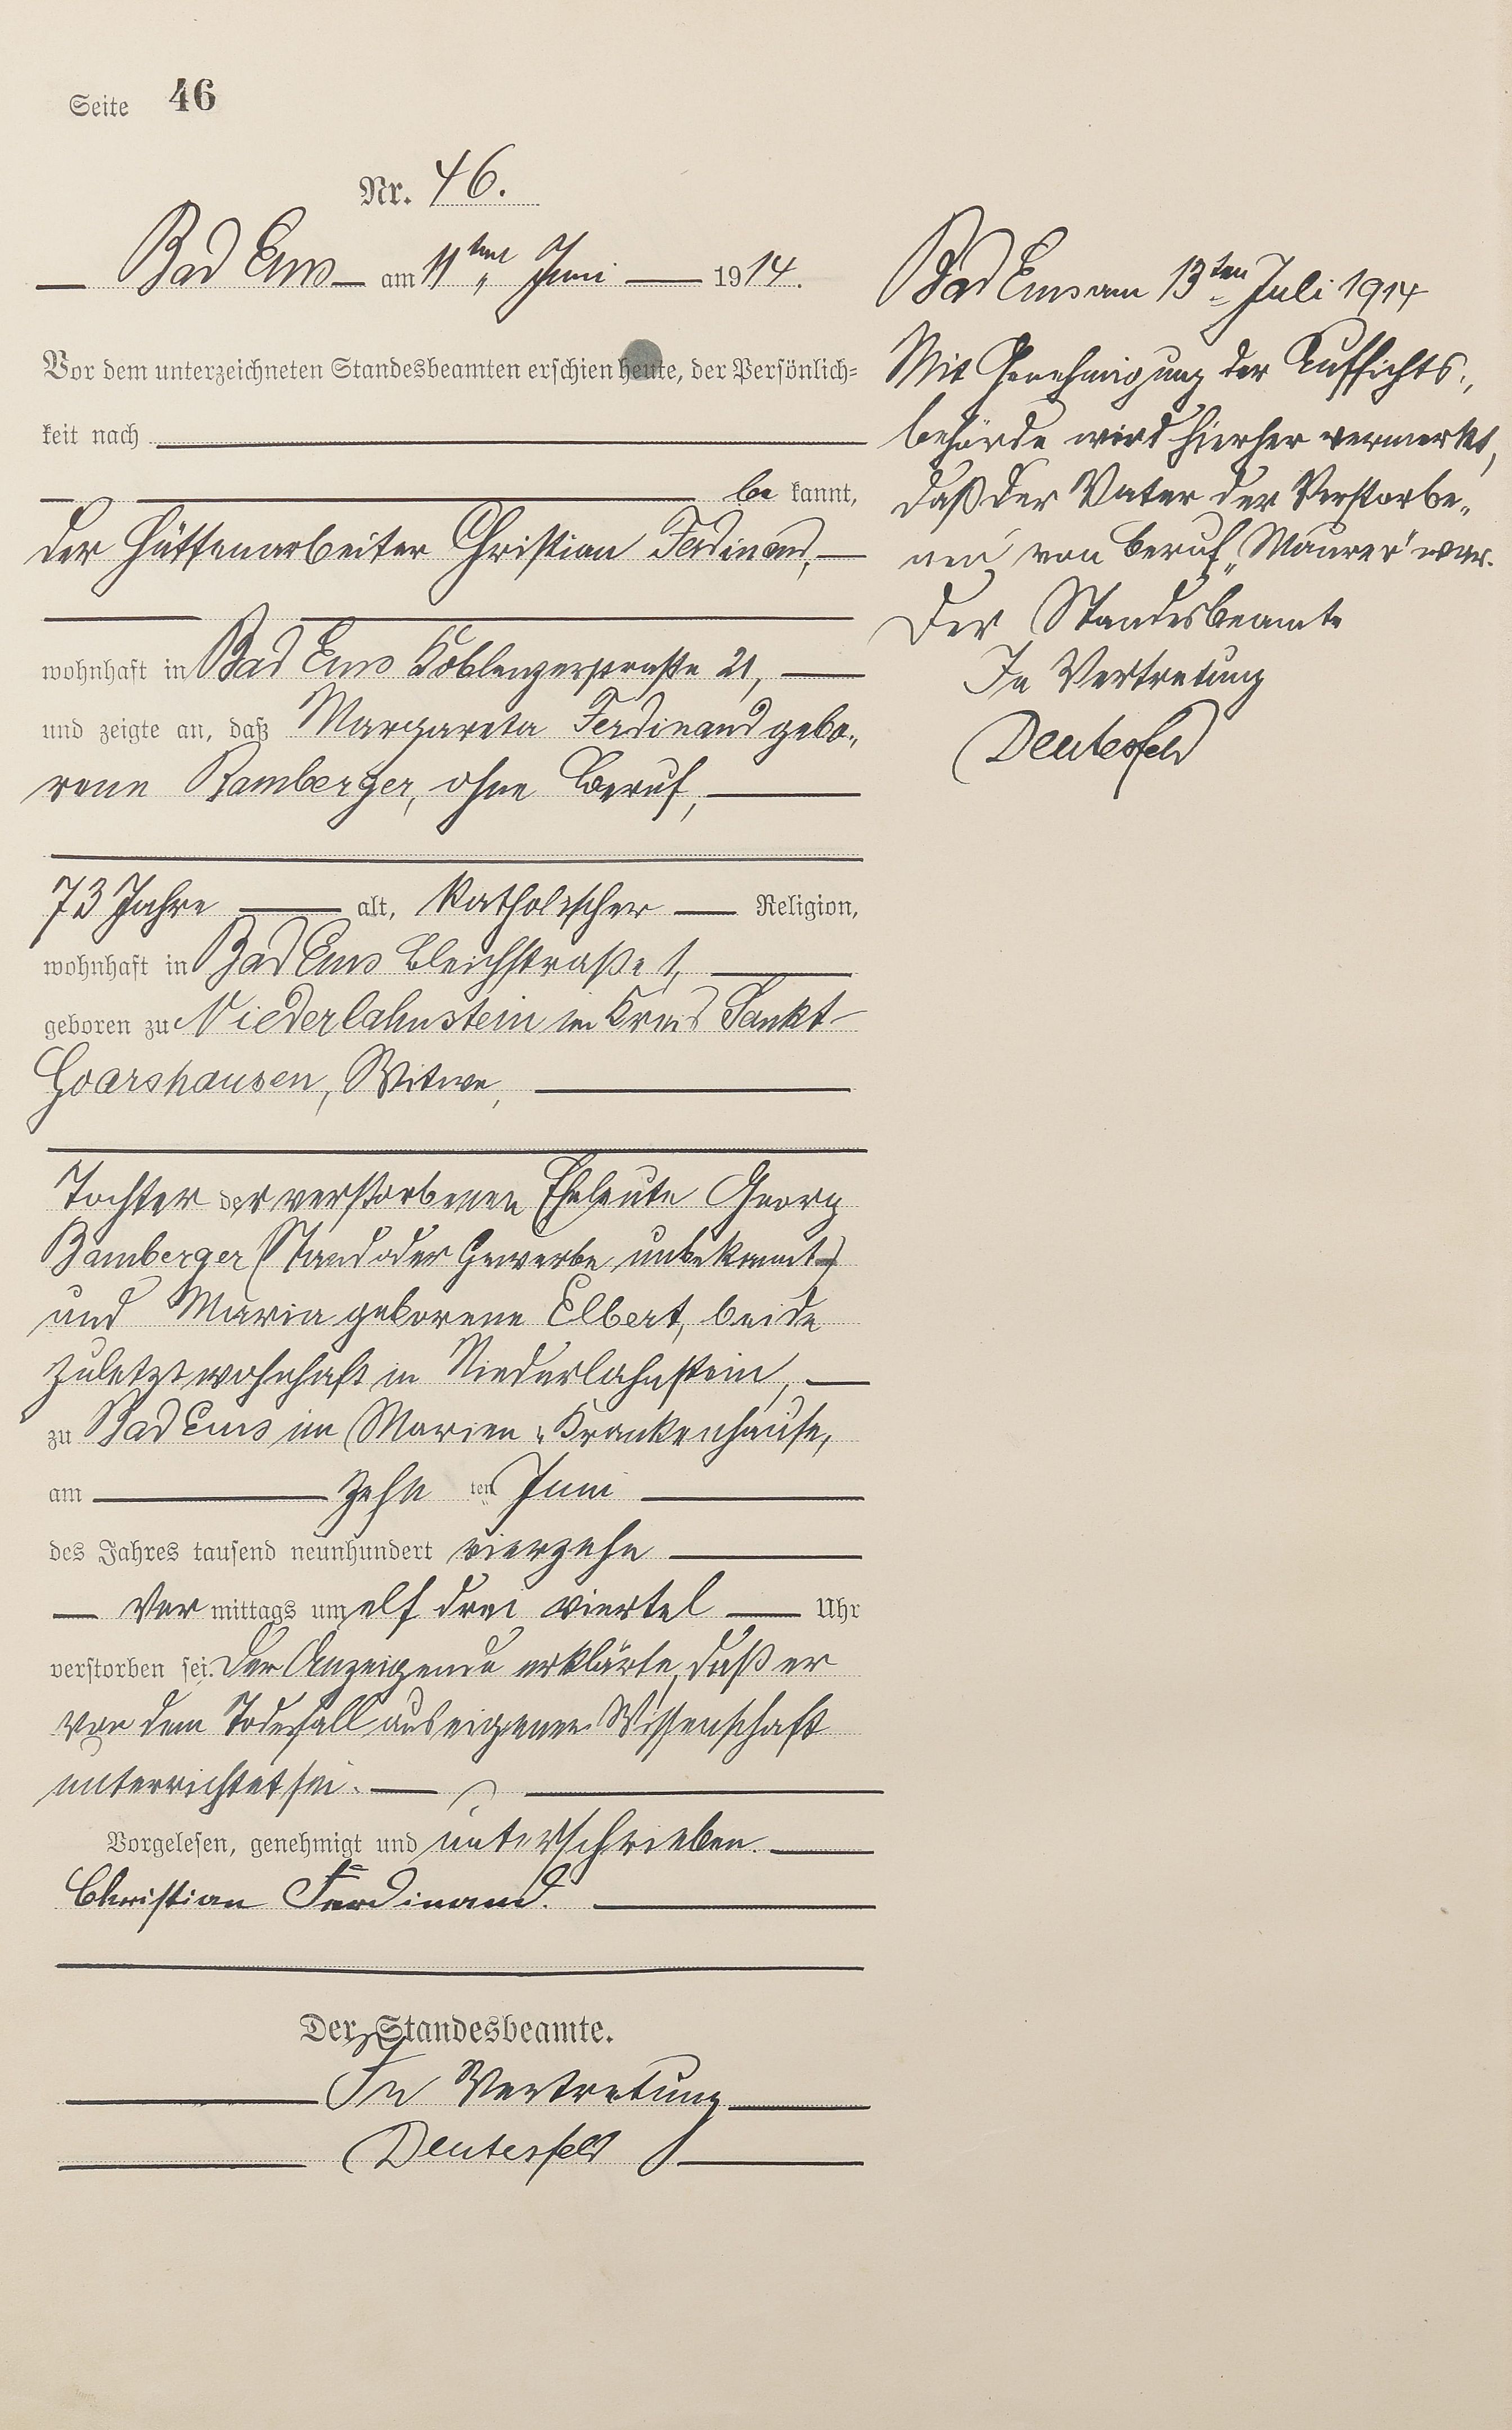 Seite 46
Nr. 46.
Bad Ems am 11ten Juni 1914.
Vor dem unterzeichneten Standesbeamten erschien heute, der Persönlich=
keit nach
be kannt,
der Hüttenarbeiter Christian Ferdinand,
wohnhaft in Bad Ems Koblenzerstraße 21,
und zeigte an, daß Margareta Ferdinand gebo„
rene Bamberger, ohne Beruf,
73 Jahre alt, katholischer Religion,
wohnhaft in Bad Ems Bleichstraße 1,
geboren zu Niederlahnstein im Kreis Sankt
Goarshausen, Witwe,
Tochter der verstorbenen Eheleute Georg
Bamberger (Stand oder Gewerbe unbekannt)
und Maria geborene Elbert, beide
zuletzt wohnhaft in Niederlahnstein,
zu Bad Ems im Marien„Krankenhause,
am zehn ten Juni
des Jahres tausend neunhundert vierzehn
Vor mittags um elf drei viertel Uhr
verstorben sei. Der Anzeigende erklärte, daß er
von dem Todesfall aus eigener Wissenschaft
unterrichtet sei.
Vorgelesen, genehmigt und unterschrieben.
Christian Ferdinand.
Der Standesbeamte.
In Vertretung
Deutesfeld
Bad Ems am 13ten Juli 1914
Mit Genehmigung der Aufsichts„
behörde wird hierher vermerkt,
daß der Vater der Verstorbe„
nen von Beruf „Maurer" war.
Der Standesbeamte
In Vertretung
Deutesfeld